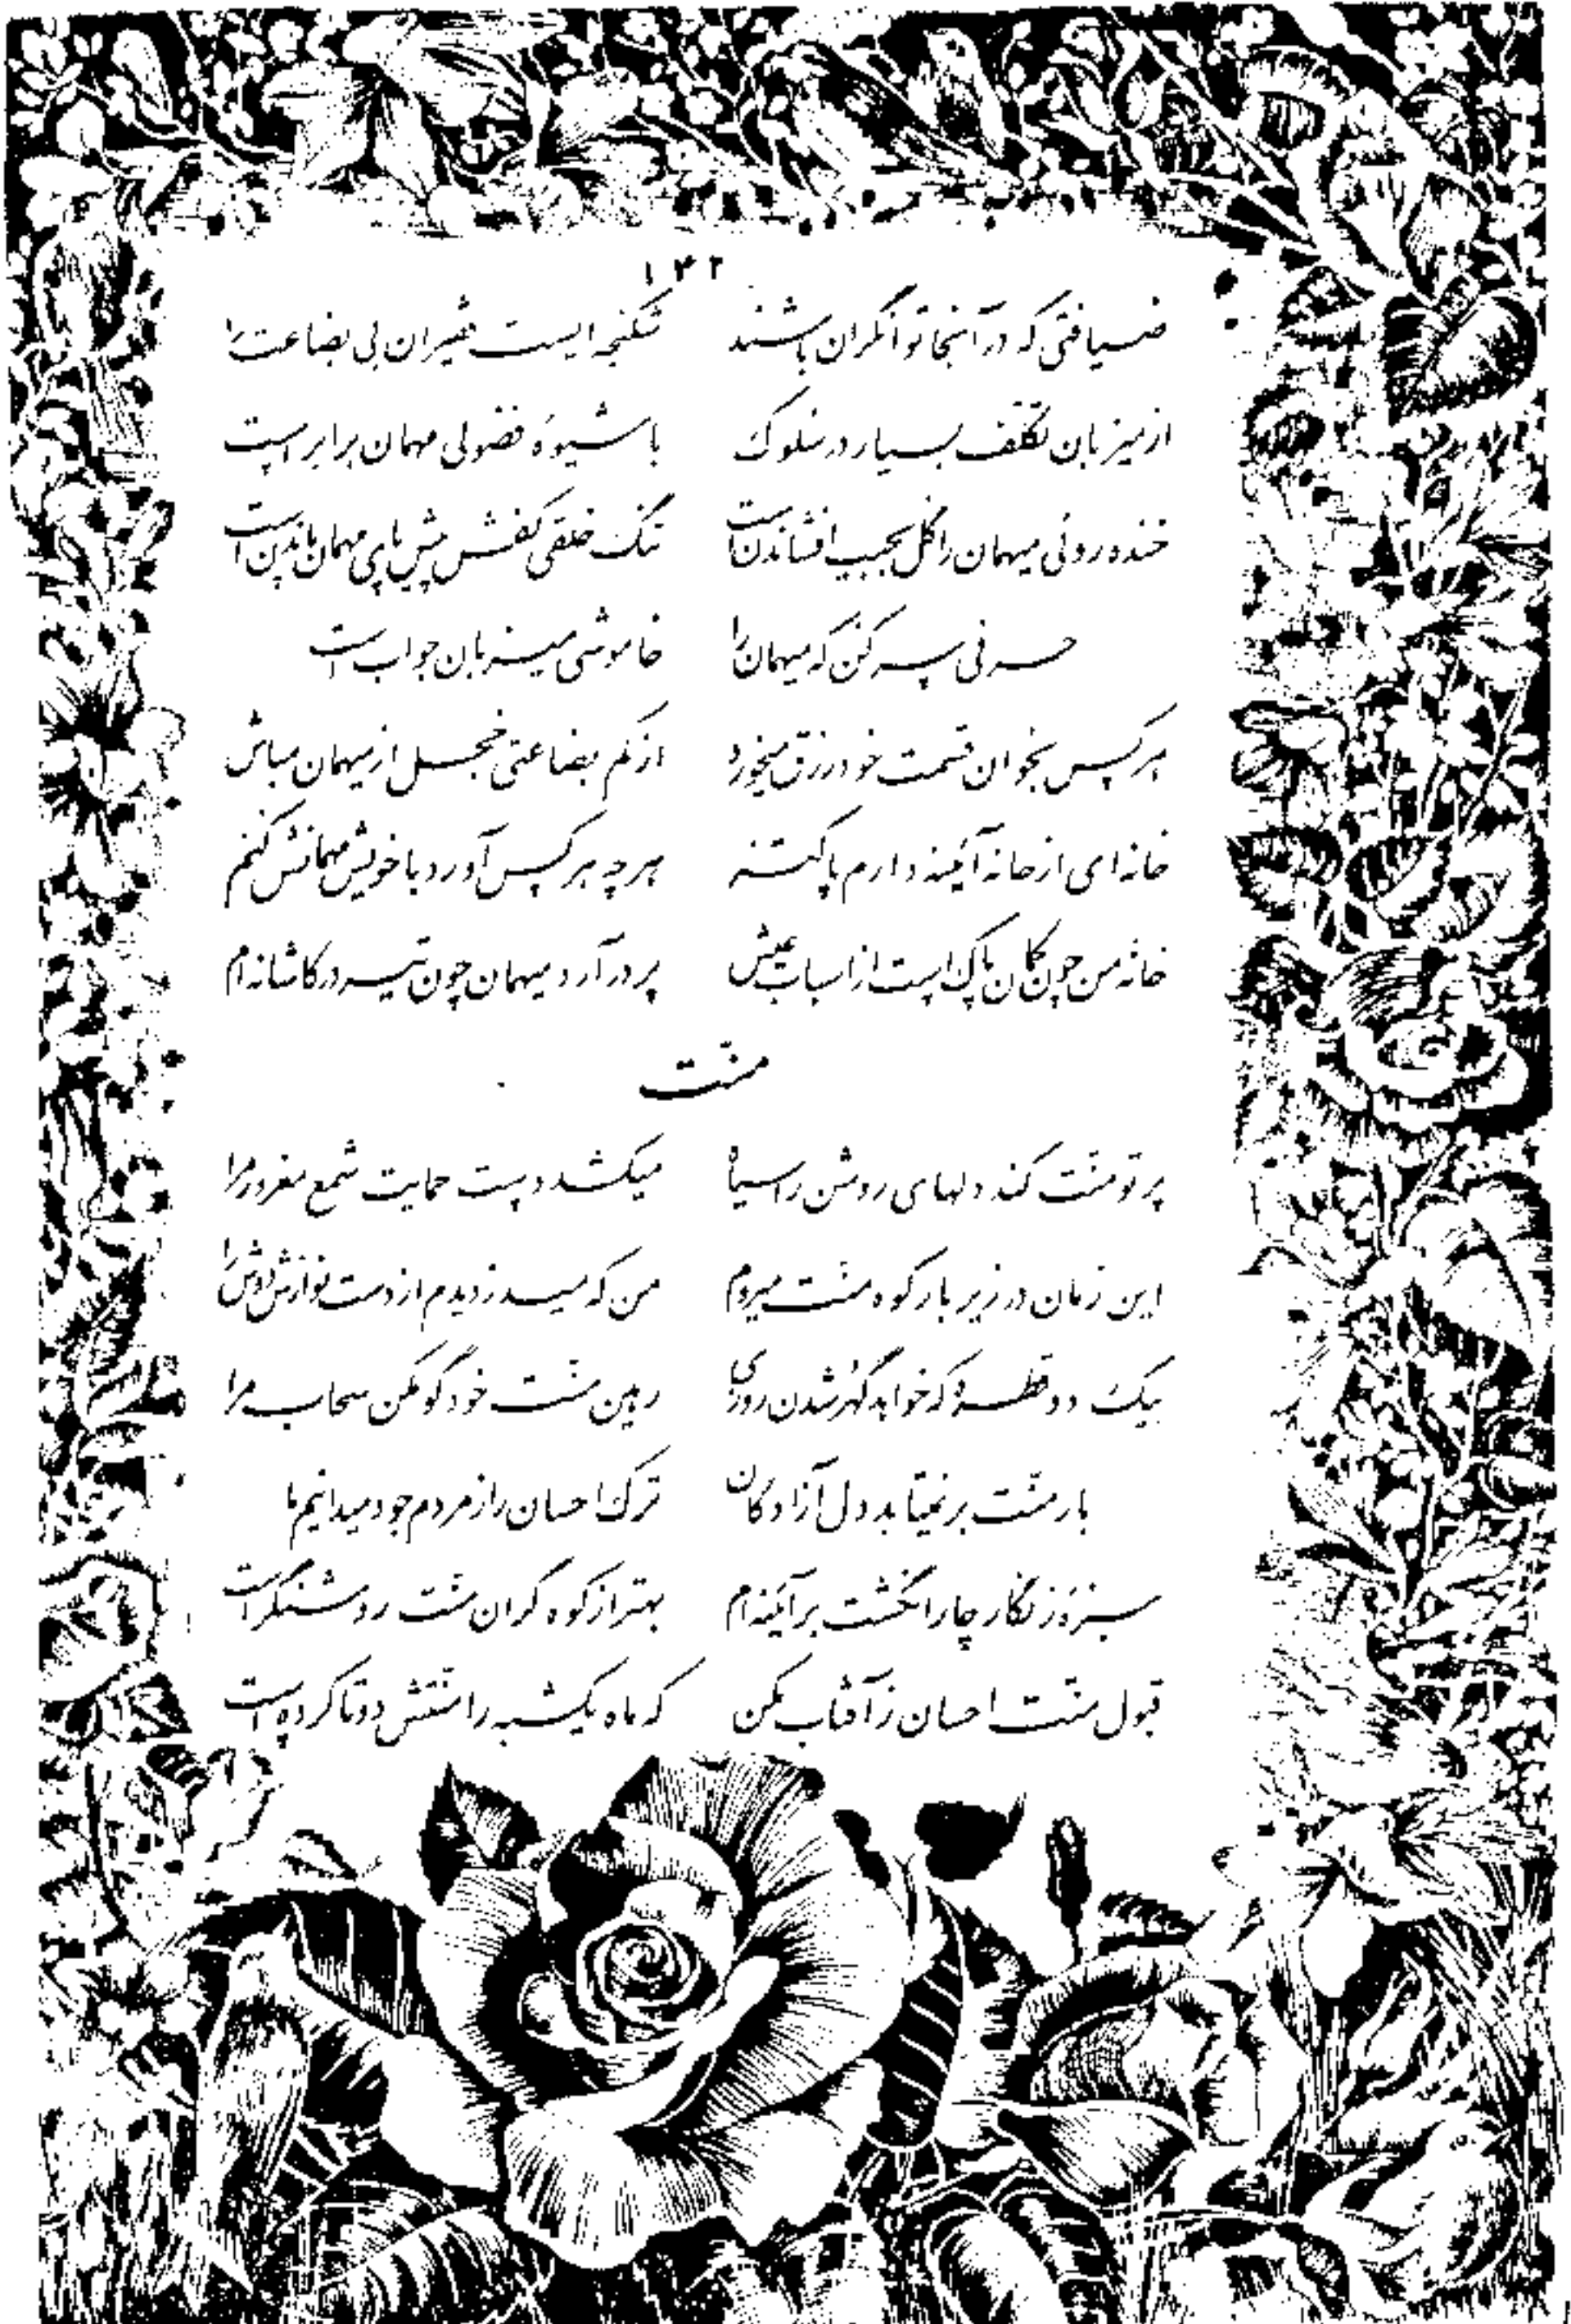 ۱۴۲
ضیافتی که در آنجا توانگران باشند شکنجه ایست فقیران بی بضاعت را
از میزبان تکلف بسیار در سلوک با شیوه فضولی مهمان برابر است
خنده روئی میهمان را گل بجیب افشاندن است تنگ خلقی کفش پیش پای مهمان ماندن است
حرفی سر کن که میهمان را خاموشی میزبان جواب است
هر کس بخوان قسمت خود رزق میخورد از کم بضاعتی خجل از میهمان مباش
خانه ای از خانه آئینه دارم پاکتر هر چه هر کس آورد با خویش مهمانش کنم
خانه من چون کمان پاک است از اسباب عیش پر در آرد میهمان چون تیر در کاشانه ام
منت
پرتو منت کند دلهای روشن را سیاه میکشد دست حمایت شمع مغرور مرا
این زمان در زیر بار کوه منت میروم من که میدزدیدم از دست نوازش دوش را
بیک دو قطره که خواهد گهر شدن روزی رهین منت خود گو مکن سحاب مرا
بار منت بر نمیتابد دل آزادگان ترک احسان را ز مردم جود میدانیم ما
سبزه زنگار چار انگشت بر آئینه ام بهتر از کوه گران منت روشنگر است
قبول منت احسان ز آفتاب مکن که ماه یکشبه را منتش دو تا کرده است